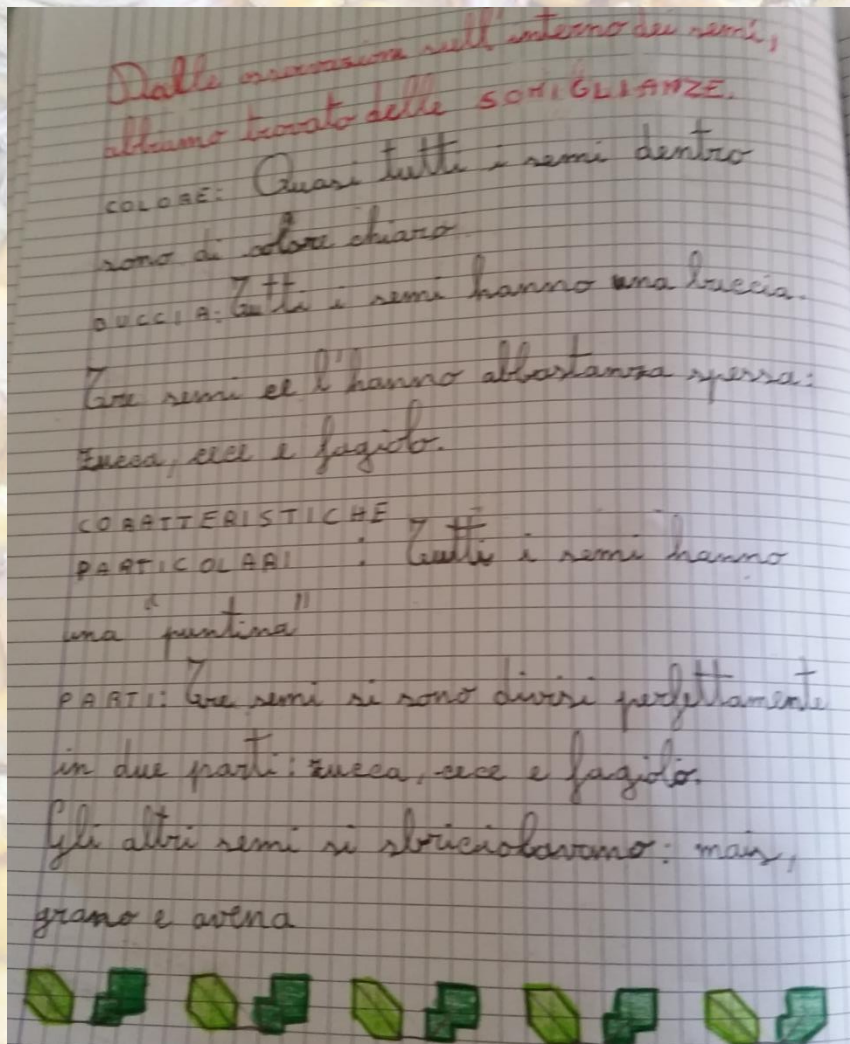 Dalle osservazioni sull'interno dei semi,
abbiamo trovato delle SOMIGLIANZE.
COLORE: Quasi tutti i semi dentro
sono di colore chiaro
BUCCIA: Tutti i semi hanno una buccia.
Tre semi ce l'hanno abbastanza spessa:
zucca, cece e fagiolo.
CARATTERISTICHE
PARTICOLARI : Tutti i semi hanno
una "puntina"
PARTI: Tre semi si sono divisi perfettamente
in due parti: zucca, cece e fagiolo.
Gli altri semi si sbriciolavano: mais,
grano e avena